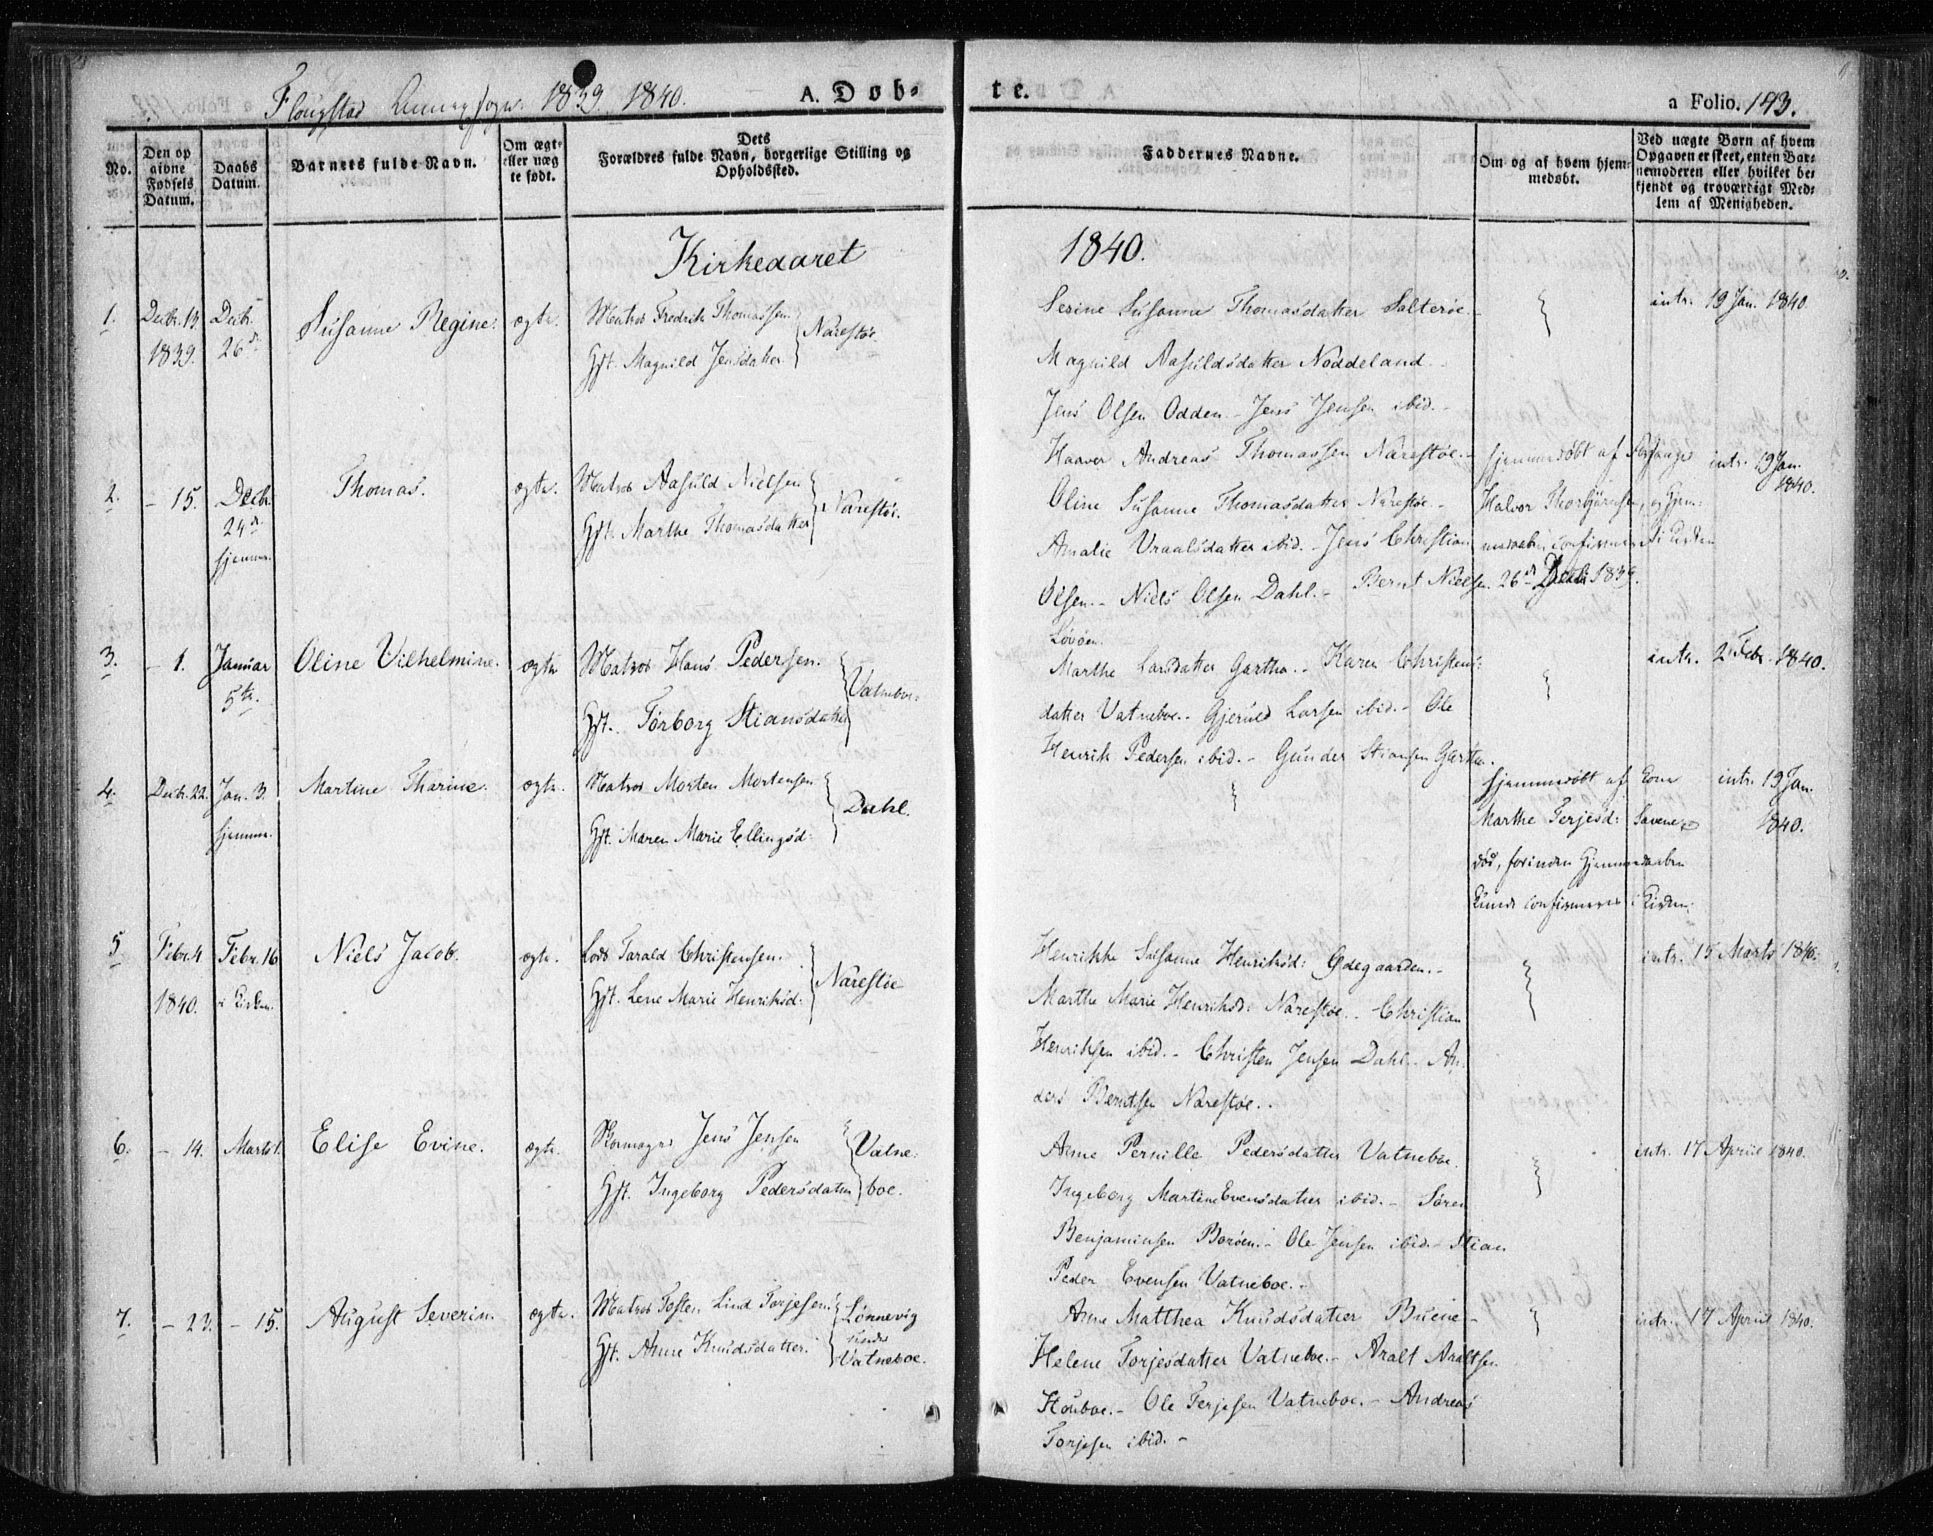 Flougstad Annexsogn. 1839. 1840.
A. Døb-
te.
a Folio. 193.
No.
Den op
givne
Fødsels
Datum.
Daabs
Datum.
Barnets fulde Navn.
Om ægte
eller uæg
te født.
Dets
Forældres fulde Navn, borgerlige Stilling og
Opholdssted.
Faddernes Navne.
Om og af hvem hjem-
medøbt.
Ved uægte Børn af hvem
Opgaven er skeet, enten Bar-
nemoderen eller hvilket be-
kjendt og troværdigt Med-
lem af Menigheden.
Kirkeaaret 1840.
1. Decbr. 13 1839. Decbr. 26 d. Susanne Regine. ægte.
Matros Fredrik Thomassen
Hst. Magnild Jensdatter
Narestøe.
Serine Susanne Thomasdatter Salterøe.
Magnild Aasuldsdatter Noddeland.
Jens Olsen Odden - Jens Jensen ibid.
Haaver Andreas Thomassen Narestøe.
intr. 19 Jan. 1840.
2. - 15. Decbr. 24 d. hjemme. Thomas. ægte.
Matros Aasuld Nielsen
Hst. Marthe Thomasdatter
Narestøe.
Oline Susanne Thomasdatter Narestøe.
Amalie Vraalsdatter ibid. - Jens Christian
Olsen. - Niels Olsen Dahl. - Bernt Nielsen
Løvøen.
hjemmedøbt af
Halvor Thorbjørnsen, og Hjem-
medaaben confirmeret i Kirken
26 d. Decbr. 1839.
intr. 19 Jan.
1840.
3. - 1. Januar 5te. Oline Vilhelmine. ægte.
Matros Hans Pedersen.
Hst. Torborg Stiansdatter
Vatneboe.
Marthe Larsdatter Gartha. - Karen Christens-
datter Vatneboe. - Gjeruld Larsen ibid. - Ole
Henrik Pedersen ibid. - Gunder Stiansen Gartha.
intr. 2 Febr. 1840.
4. Decbr. 22. Jan. 3. hjemme. Martine Tharine. ægte.
Matros Morten Mortensen
Hst. Maren Marie Ellingsd:
Dahl.
hjemmedøbt af Kone
Marthe Terjesd: Savene,
død, forinden Hjemmedaaben
kunde confirmeres i Kirken.
intr. 19 Jan.
1840.
5 Febr. 4 1840. Febr. 16 i Kirken. Niels Jacob. ægte.
Lods Tarald Christensen.
Hst. Lene Marie Henriksd:
Narestøe
Henrikke Susanne Henriksd: Ødegaarden. -
Marthe Marie Henriksd: Narestøe. - Christian
Henriksen ibid. - Christen Jensen Dahl. - An-
ders Berntsen Narestøe. -
intr. 15 Marts 1840.
6. - 14. Marts 1. Elise Evine. ægte.
Skomager Jens Jensen
Hst. Ingeborg Pedersdatter
Vatne-
boe.
Anne Pernille Pedersdatter Vatneboe.
Ingeborg Martine Evensdatter ibid. - Søren
Benjaminsen Borøen. - Ole Jensen ibid. - Stian
Peder Evensen Vatneboe. -
intr. 17 April 1840.
7. - 23. - 15. August Severin. ægte.
Matros Tosten Lind Torjesen
Hst. Anne Knudsdatter.
Lønnevig
Vatneboe.
Anne Matthea Knudsdatter Buene -
Helene Torjesdatter Vatneboe. - Aralt Araltsen
Houboe. - Ole Terjesen Vatneboe. - Andreas
Torjesen ibid. -
intr. 17 April 1840.